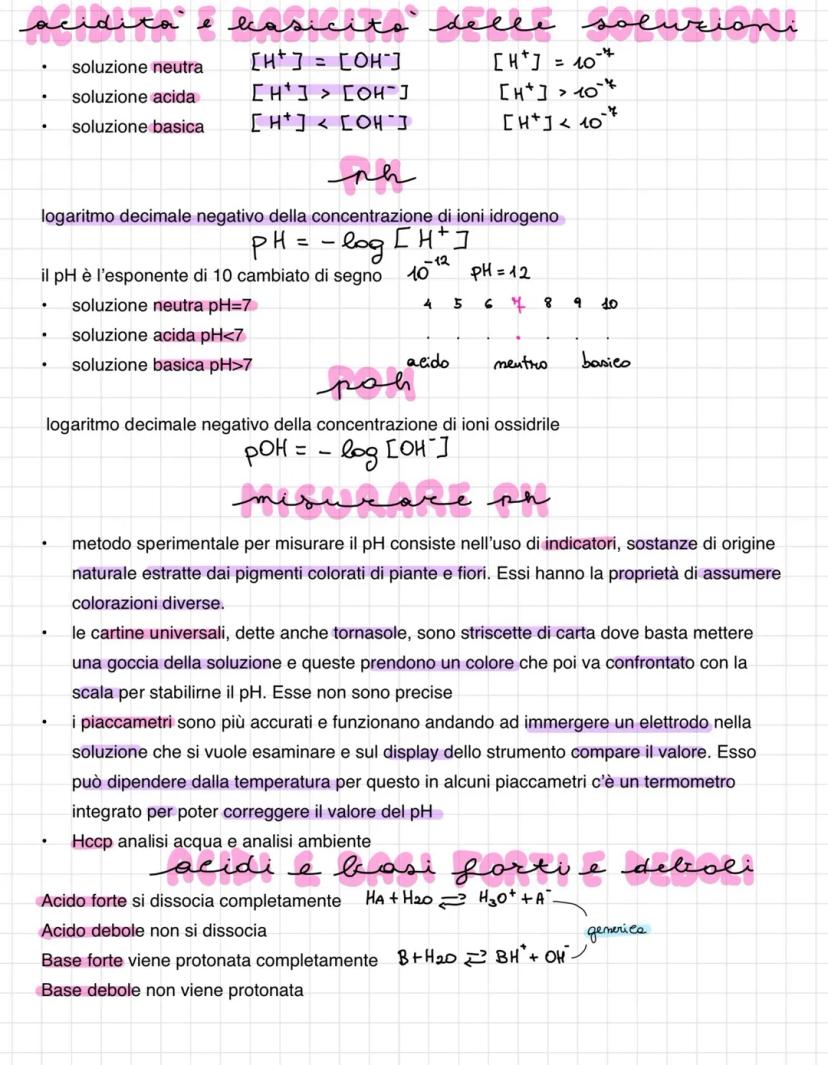 acidità e basicità delle soluzioni
• soluzione neutra [H⁺] = [OH⁻] [H⁺] = 10⁻⁷
• soluzione acida [H⁺] > [OH⁻] [H⁺] > 10⁻⁷
• soluzione basica [H⁺] < [OH⁻] [H⁺] < 10⁻⁷
ph
logaritmo decimale negativo della concentrazione di ioni idrogeno
pH = - log [H⁺]
il pH è l'esponente di 10 cambiato di segno 10⁻¹² pH = 12
• soluzione neutra pH=7 4 5 6 7 8 9 10
• soluzione acida pH<7
• soluzione basica pH>7 acido neutro basico
poh
logaritmo decimale negativo della concentrazione di ioni ossidrile
pOH = - log [OH⁻]
misurare ph
• metodo sperimentale per misurare il pH consiste nell'uso di indicatori, sostanze di origine
naturale estratte dai pigmenti colorati di piante e fiori. Essi hanno la proprietà di assumere
colorazioni diverse.
• le cartine universali, dette anche tornasole, sono striscette di carta dove basta mettere
una goccia della soluzione e queste prendono un colore che poi va confrontato con la
scala per stabilirne il pH. Esse non sono precise
• i piaccametri sono più accurati e funzionano andando ad immergere un elettrodo nella
soluzione che si vuole esaminare e sul display dello strumento compare il valore. Esso
può dipendere dalla temperatura per questo in alcuni piaccametri c'è un termometro
integrato per poter correggere il valore del pH
• Hccp analisi acqua e analisi ambiente
acidi e basi forti e deboli
Acido forte si dissocia completamente HA + H2O ⇌ H₃O⁺ + A⁻
Acido debole non si dissocia generica
Base forte viene protonata completamente B + H2O ⇌ BH⁺ + OH⁻
Base debole non viene protonata